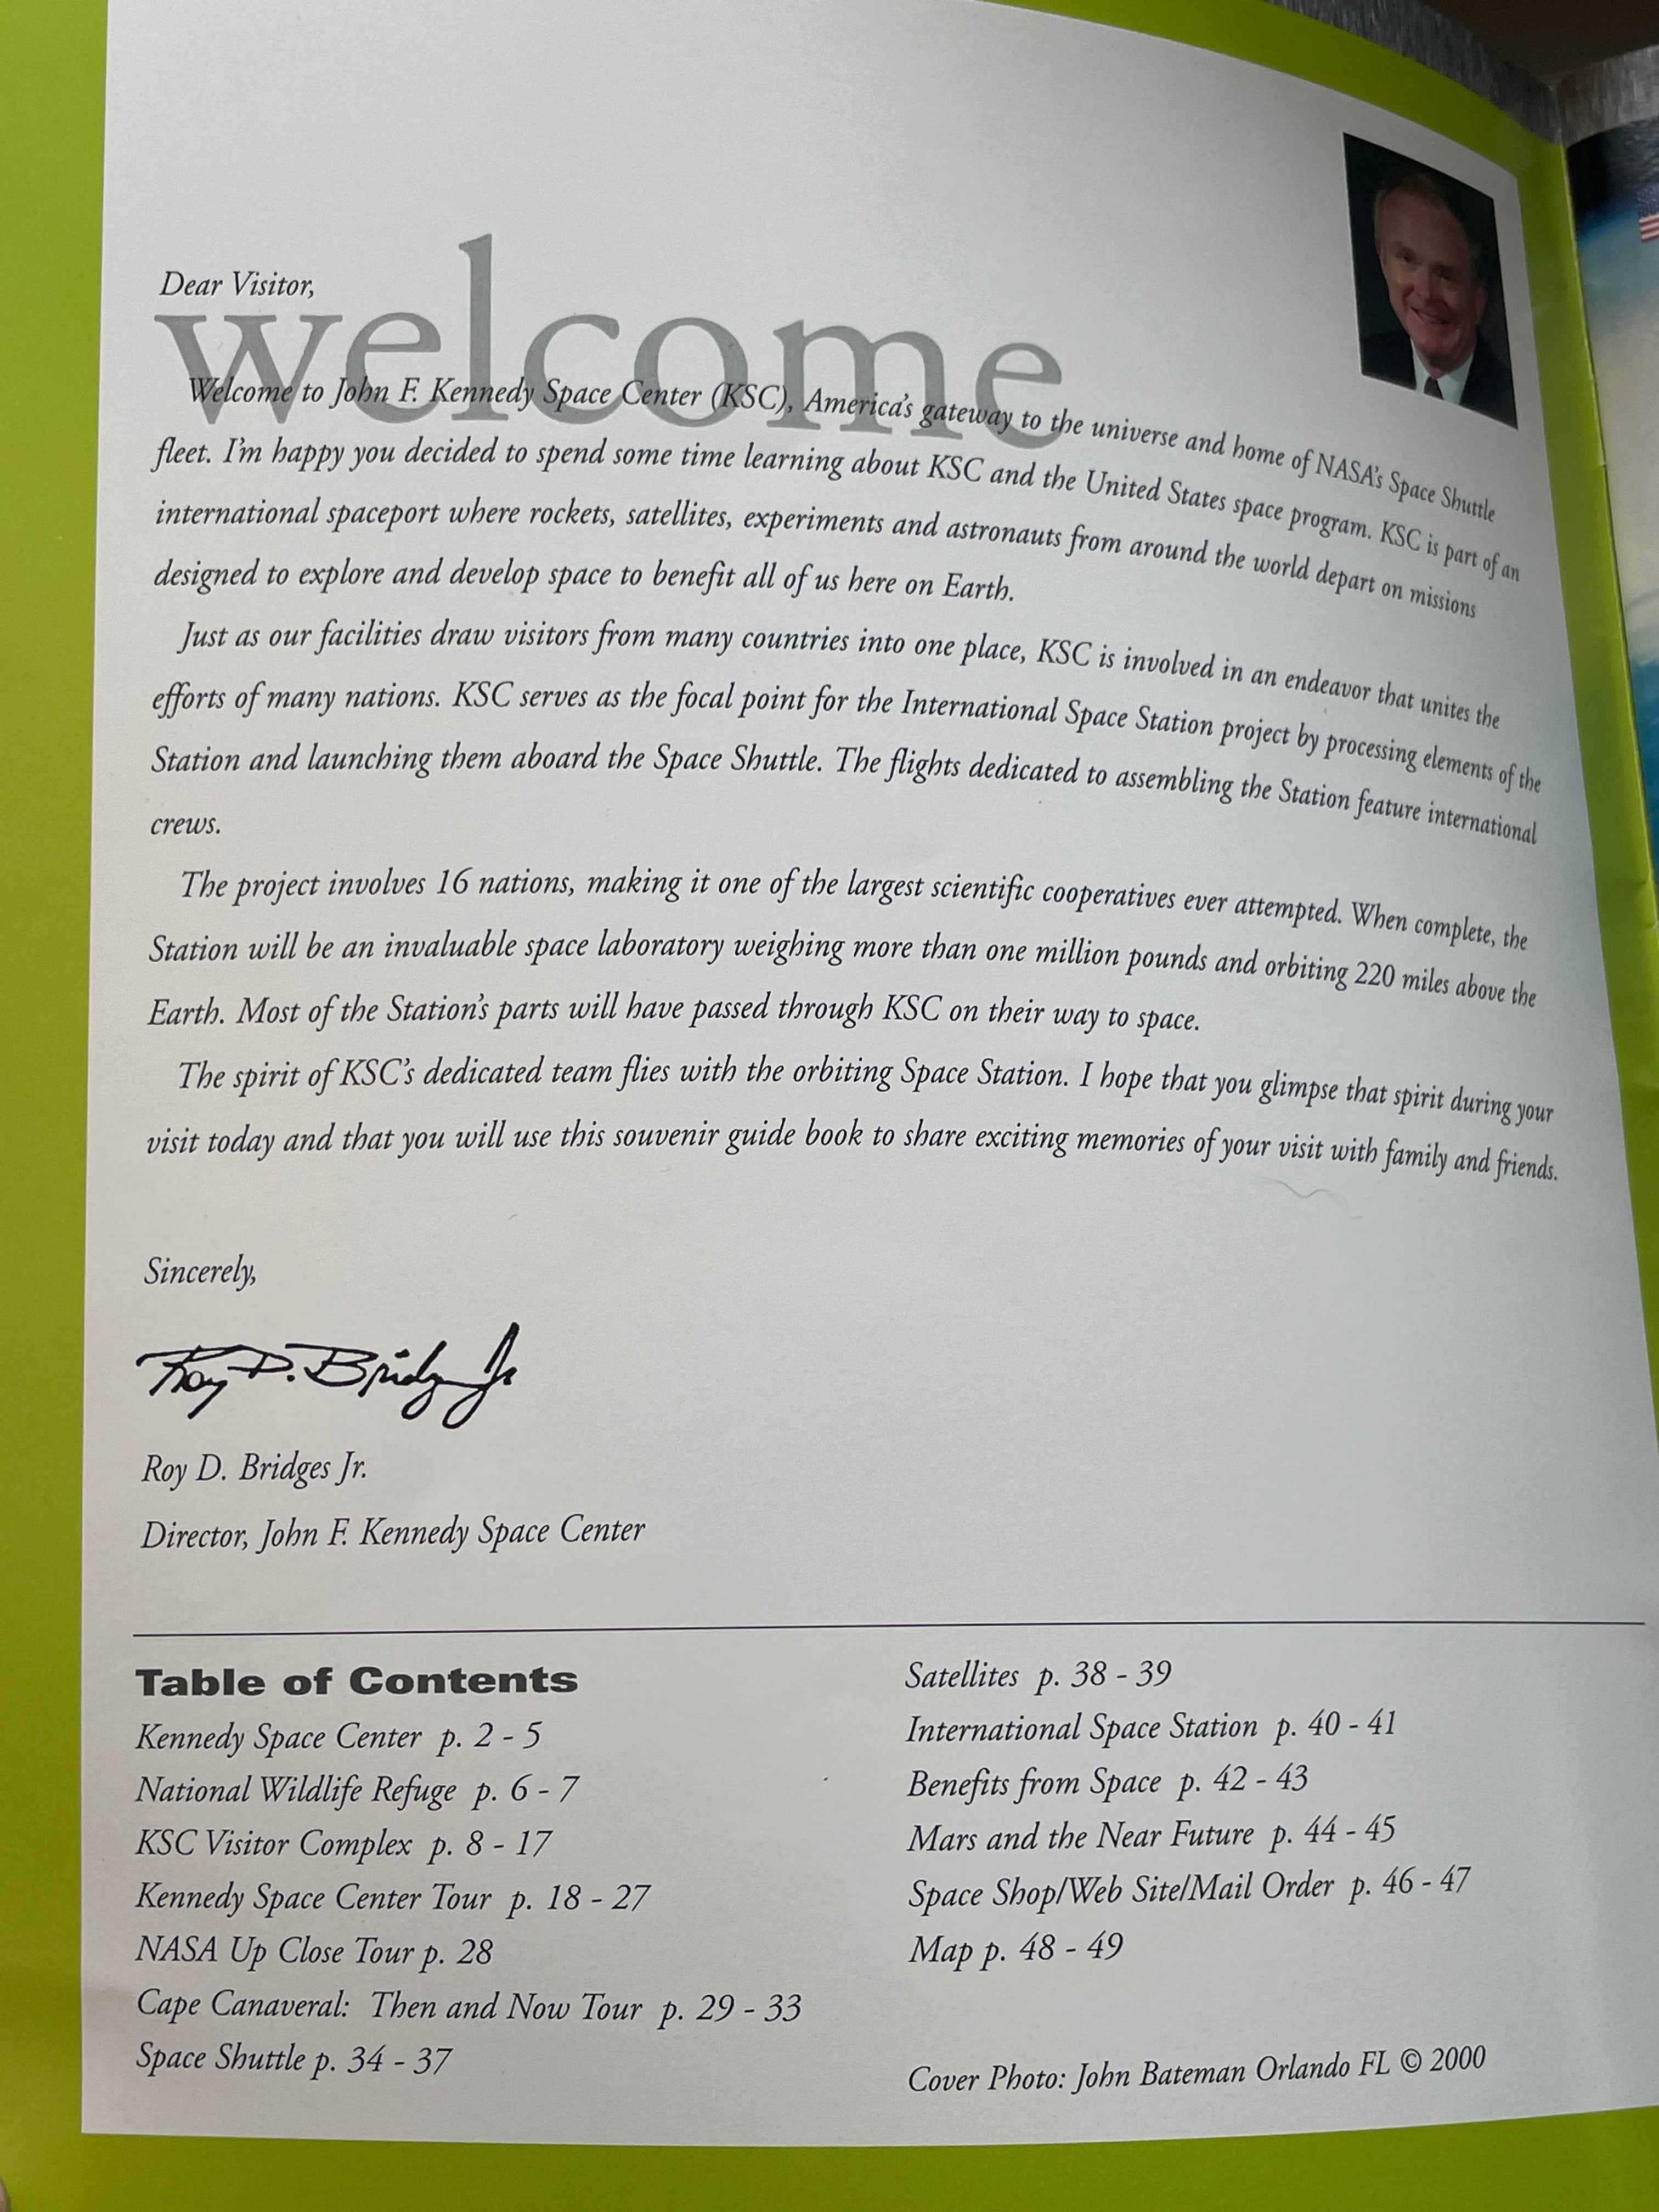 welcome
Dear Visitor,
Welcome to John F. Kennedy Space Center (KSC), America's gateway to the universe and home of NASA's Space Shuttle
fleet. I'm happy you decided to spend some time learning about KSC and the United States space program. KSC is part of an
international spaceport where rockets, satellites, experiments and astronauts from around the world depart on missions
designed to explore and develop space to benefit all of us here on Earth.
Just as our facilities draw visitors from many countries into one place, KSC is involved in an endeavor that unites the
efforts of many nations. KSC serves as the focal point for the International Space Station project by processing elements of the
Station and launching them aboard the Space Shuttle. The flights dedicated to assembling the Station feature international
crews.
The project involves 16 nations, making it one of the largest scientific cooperatives ever attempted. When complete, the
Station will be an invaluable space laboratory weighing more than one million pounds and orbiting 220 miles above the
Earth. Most of the Station's parts will have passed through KSC on their way to space.
The spirit of KSC's dedicated team flies with the orbiting Space Station. I hope that you glimpse that spirit during your
visit today and that you will use this souvenir guide book to share exciting memories of your visit with family and friends.
Sincerely,
Roy D. Bridges Jr
Roy D. Bridges Jr.
Director, John F. Kennedy Space Center
Table of Contents
Kennedy Space Center p. 2 - 5
National Wildlife Refuge p. 6 - 7
KSC Visitor Complex p. 8 - 17
Kennedy Space Center Tour p. 18 - 27
NASA Up Close Tour p. 28
Cape Canaveral: Then and Now Tour p. 29 - 33
Space Shuttle p. 34 - 37
Satellites p. 38 - 39
International Space Station p. 40 - 41
Benefits from Space p. 42 - 43
Mars and the Near Future p. 44 - 45
Space Shop/Web Site/Mail Order p. 46 - 47
Map p. 48 - 49
Cover Photo: John Bateman Orlando FL © 2000